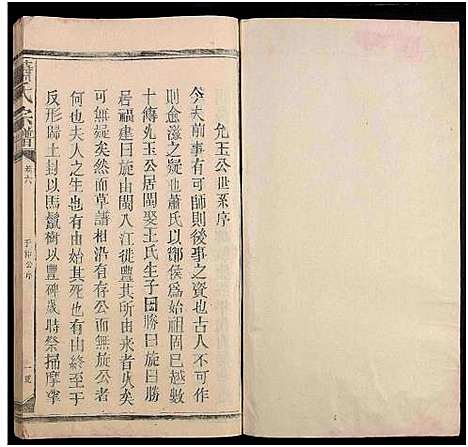 允玉公世系序
今夫前事有可師則後事之資也古人不可作
則僉滋之疑也蕭氏以酇侯爲始祖固已越數
十傳允玉公居閩娶王氏生子四曰勝曰旋曰勝
居福建曰旋由閩入江徙豐其後來自庚人矣
可無疑矣然而草譜相沿有存公而無旋公者
何也夫人之生也有由始其死也有由終至于
反形歸土封以馬鬣樹以豐碑歲時祭掃摩挲
蕭氏宗譜
卷六
公序